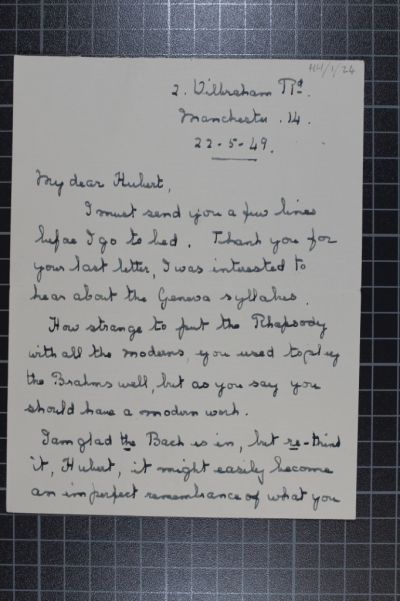 HH/1/24
2. Wilbraham Rd.
Manchester .14.
22-5-49.
My dear Hubert,
I must send you a few lines
before I go to bed. Thank you for
your last letter, I was interested to
hear about the Geneva syllabus.
How strange to put the Rhapsody
with all the moderns, you used to play
the Brahms well, but as you say you
should have a modern work.
I am glad the Bach is in, but re-think
it, Hubert, it might easily become
an imperfect remembrance of what you